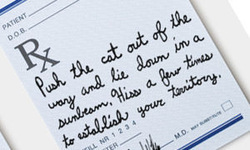 PATIENT
D.O.B.
Rx
Push the cat out of the
way and lie down in a
sunbeam. Hiss a few times
to establish your territory.
REFILL NR 1 2 3 4
M.D.
MAY SUBSTITUTE